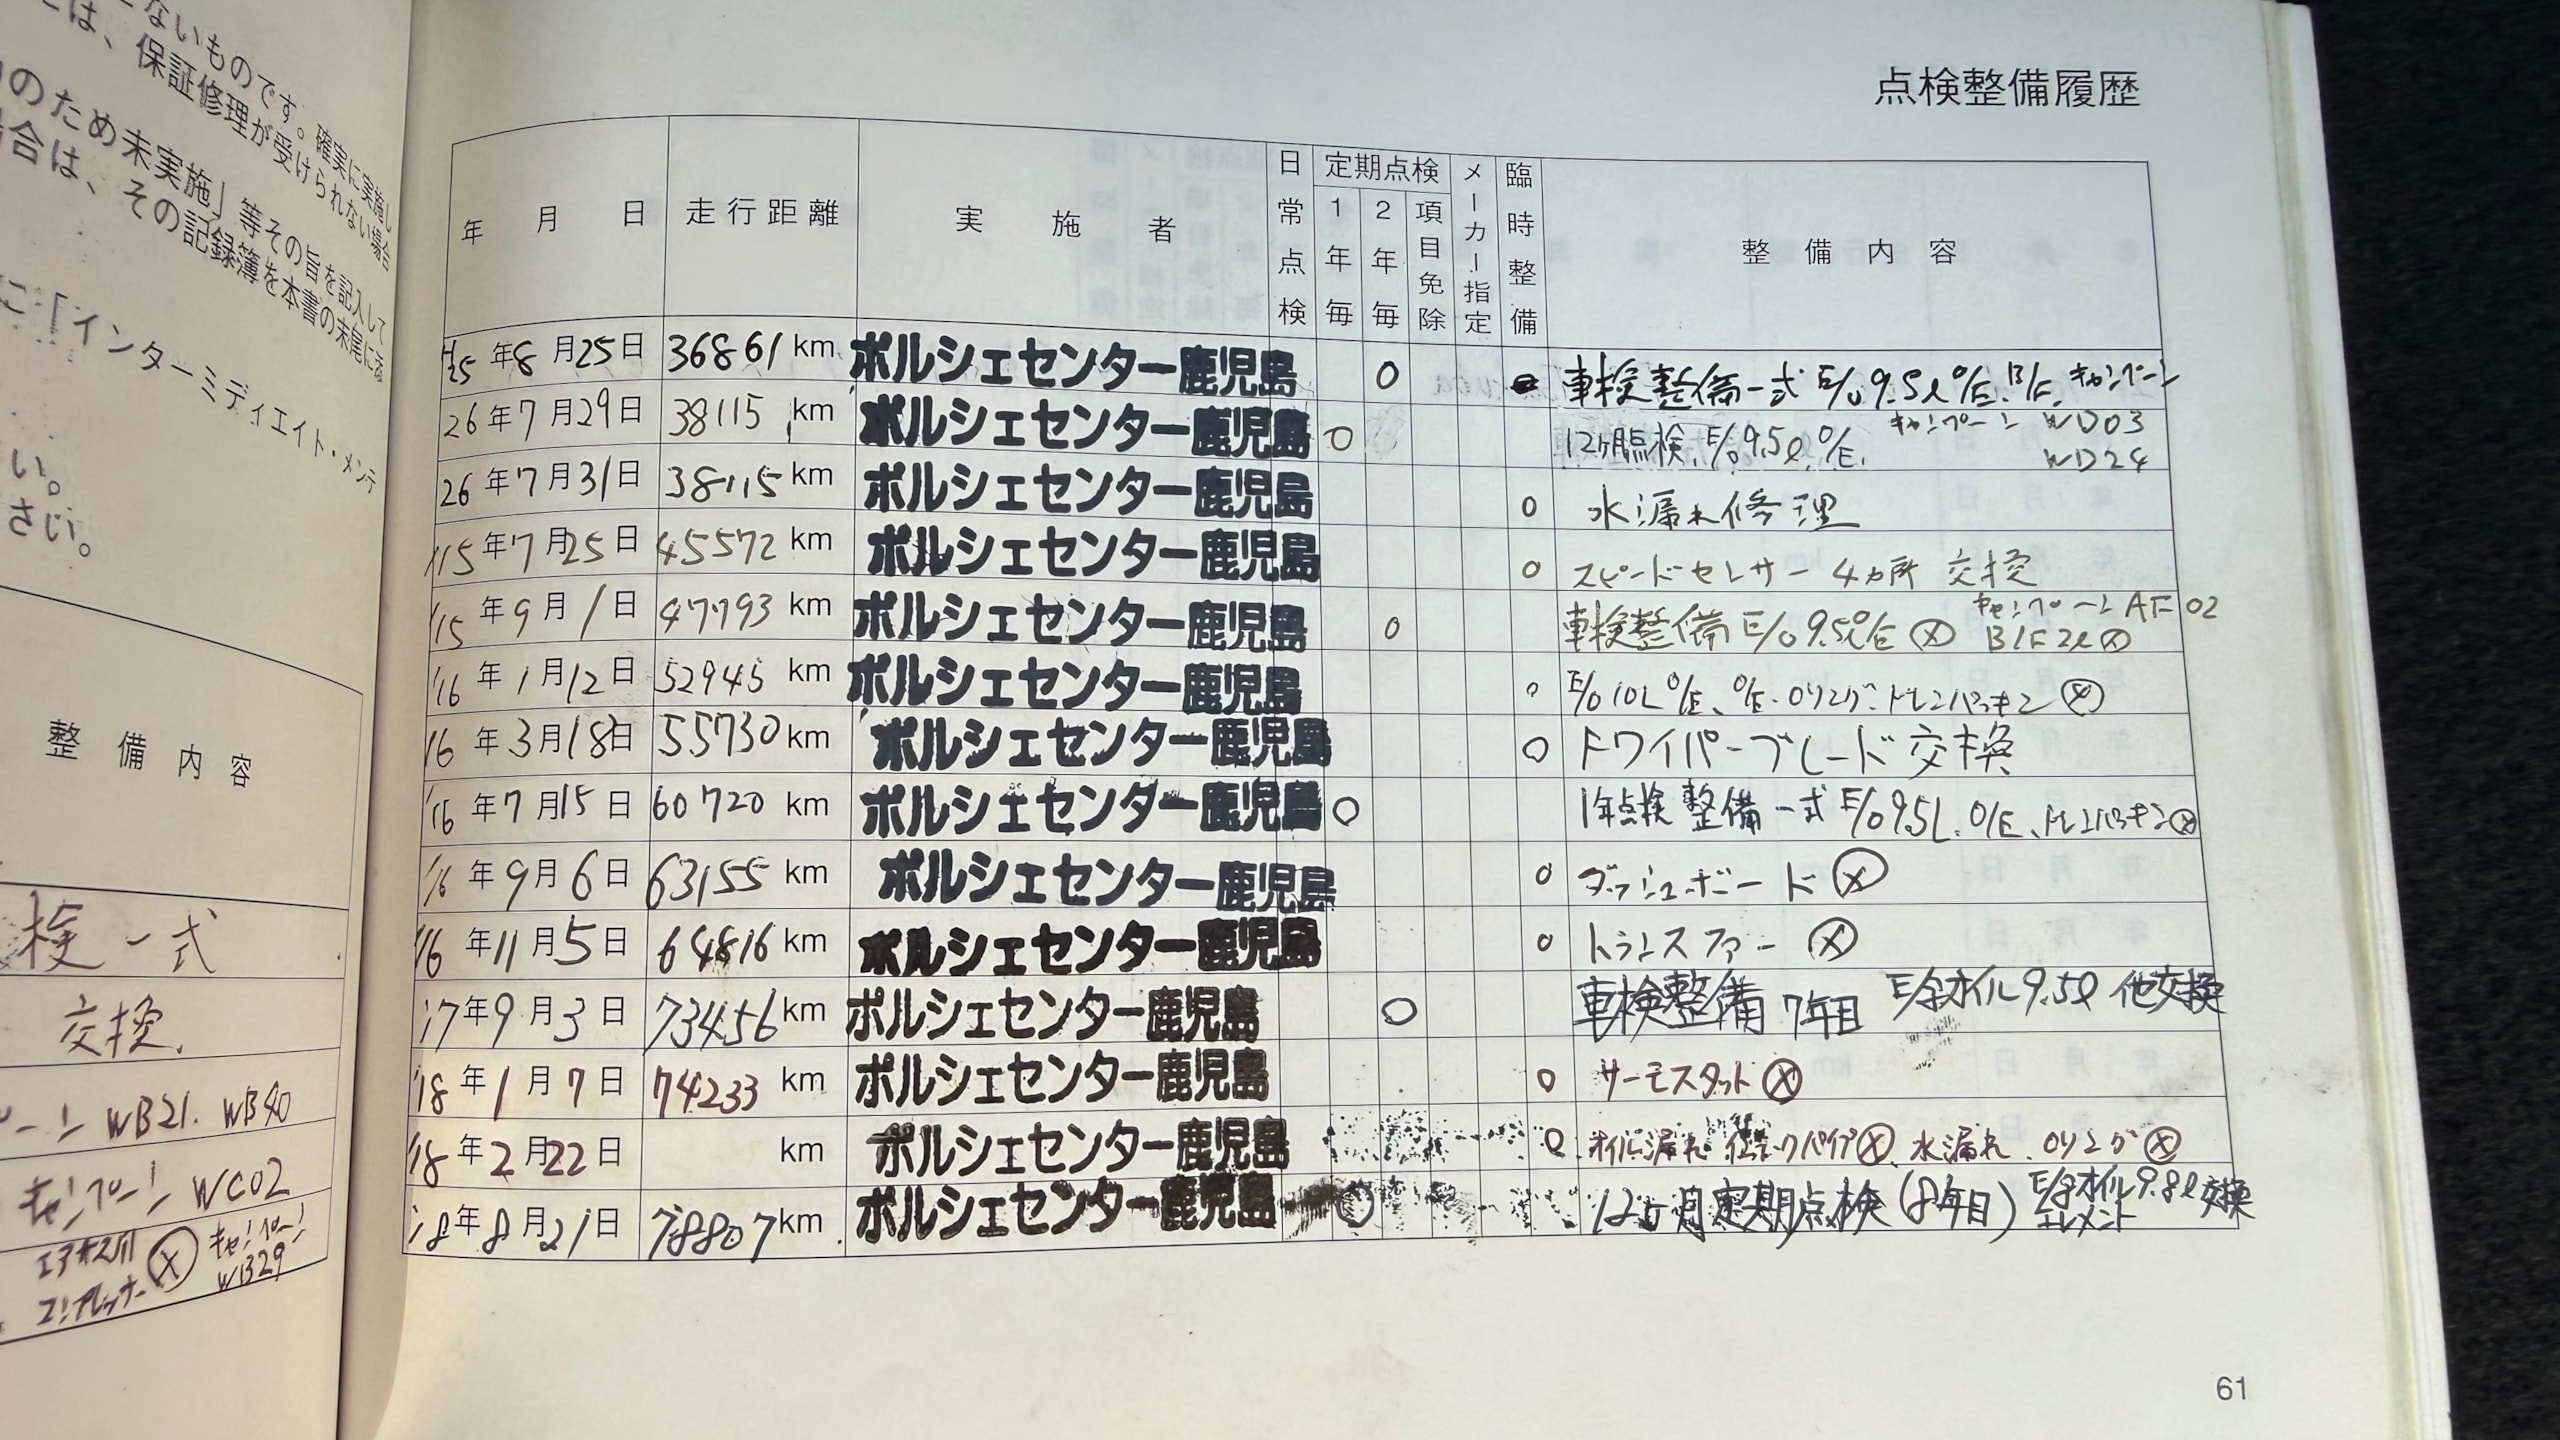 ないものです。確実に実施し
は、保証修理が受けられない場合
のため未実施」等その旨を記入して
合は、その記録簿を本書の末尾に
に「インターミディエイト・メンテ
い。
さい。
整備内容
検一式
交換.
WB21. WB40
キャンペーン WC02
エアサスコンプレッサー ⓧ キャンペーン WB29
点検整備履歴
年 月 日 走行距離 実施者 日常点検 定期点検 1年毎 2年毎 項目免除 メーカー指定 臨時整備 整備内容
年8月25日 36861 km ポルシェセンター鹿児島 ○ 車検整備一式 E/o 9.5l O/E. B/F. キャンペーン
26年7月29日 38115 km ポルシェセンター鹿児島 ○ 12ヶ月点検. E/o 9.5l. O/E. キャンペーン WD03 WD24
26年7月31日 38115 km ポルシェセンター鹿児島 ○ 水漏れ修理
'15年7月25日 45572 km ポルシェセンター鹿児島 ○ スピードセンサー 4ヵ所 交換
'15年9月1日 47793 km ポルシェセンター鹿児島 ○ 車検整備 E/o 9.5l O/E ⓧ キャンペーン AF02 B/F 2l ⓧ
'16年1月12日 52945 km ポルシェセンター鹿児島 ○ E/o 10L O/E、O/E・Oリング・ドレンパッキン ⓧ
'16年3月18日 55730 km ポルシェセンター鹿児島 ○ ワイパーブレード交換
'16年7月15日 60720 km ポルシェセンター鹿児島 ○ 1年点検整備一式 E/o 9.5L. O/E、ドレンパッキン ⓧ
'16年9月6日 63155 km ポルシェセンター鹿児島 ○ ダッシュボード ⓧ
'16年11月5日 64816 km ポルシェセンター鹿児島 ○ トランスファー ⓧ
'17年9月3日 73456 km ポルシェセンター鹿児島 ○ 車検整備 7年目 E/gオイル9.5l 他交換
'18年1月7日 74233 km ポルシェセンター鹿児島 ○ サーモスタット ⓧ
'18年2月22日 km ポルシェセンター鹿児島 ○ オイル漏れ パイプ ⓧ 水漏れ Oリング ⓧ
'18年8月21日 78807 km ポルシェセンター鹿児島 ○ 12ヶ月定期点検(8年目) E/gオイル9.8l エレメント 交換
61